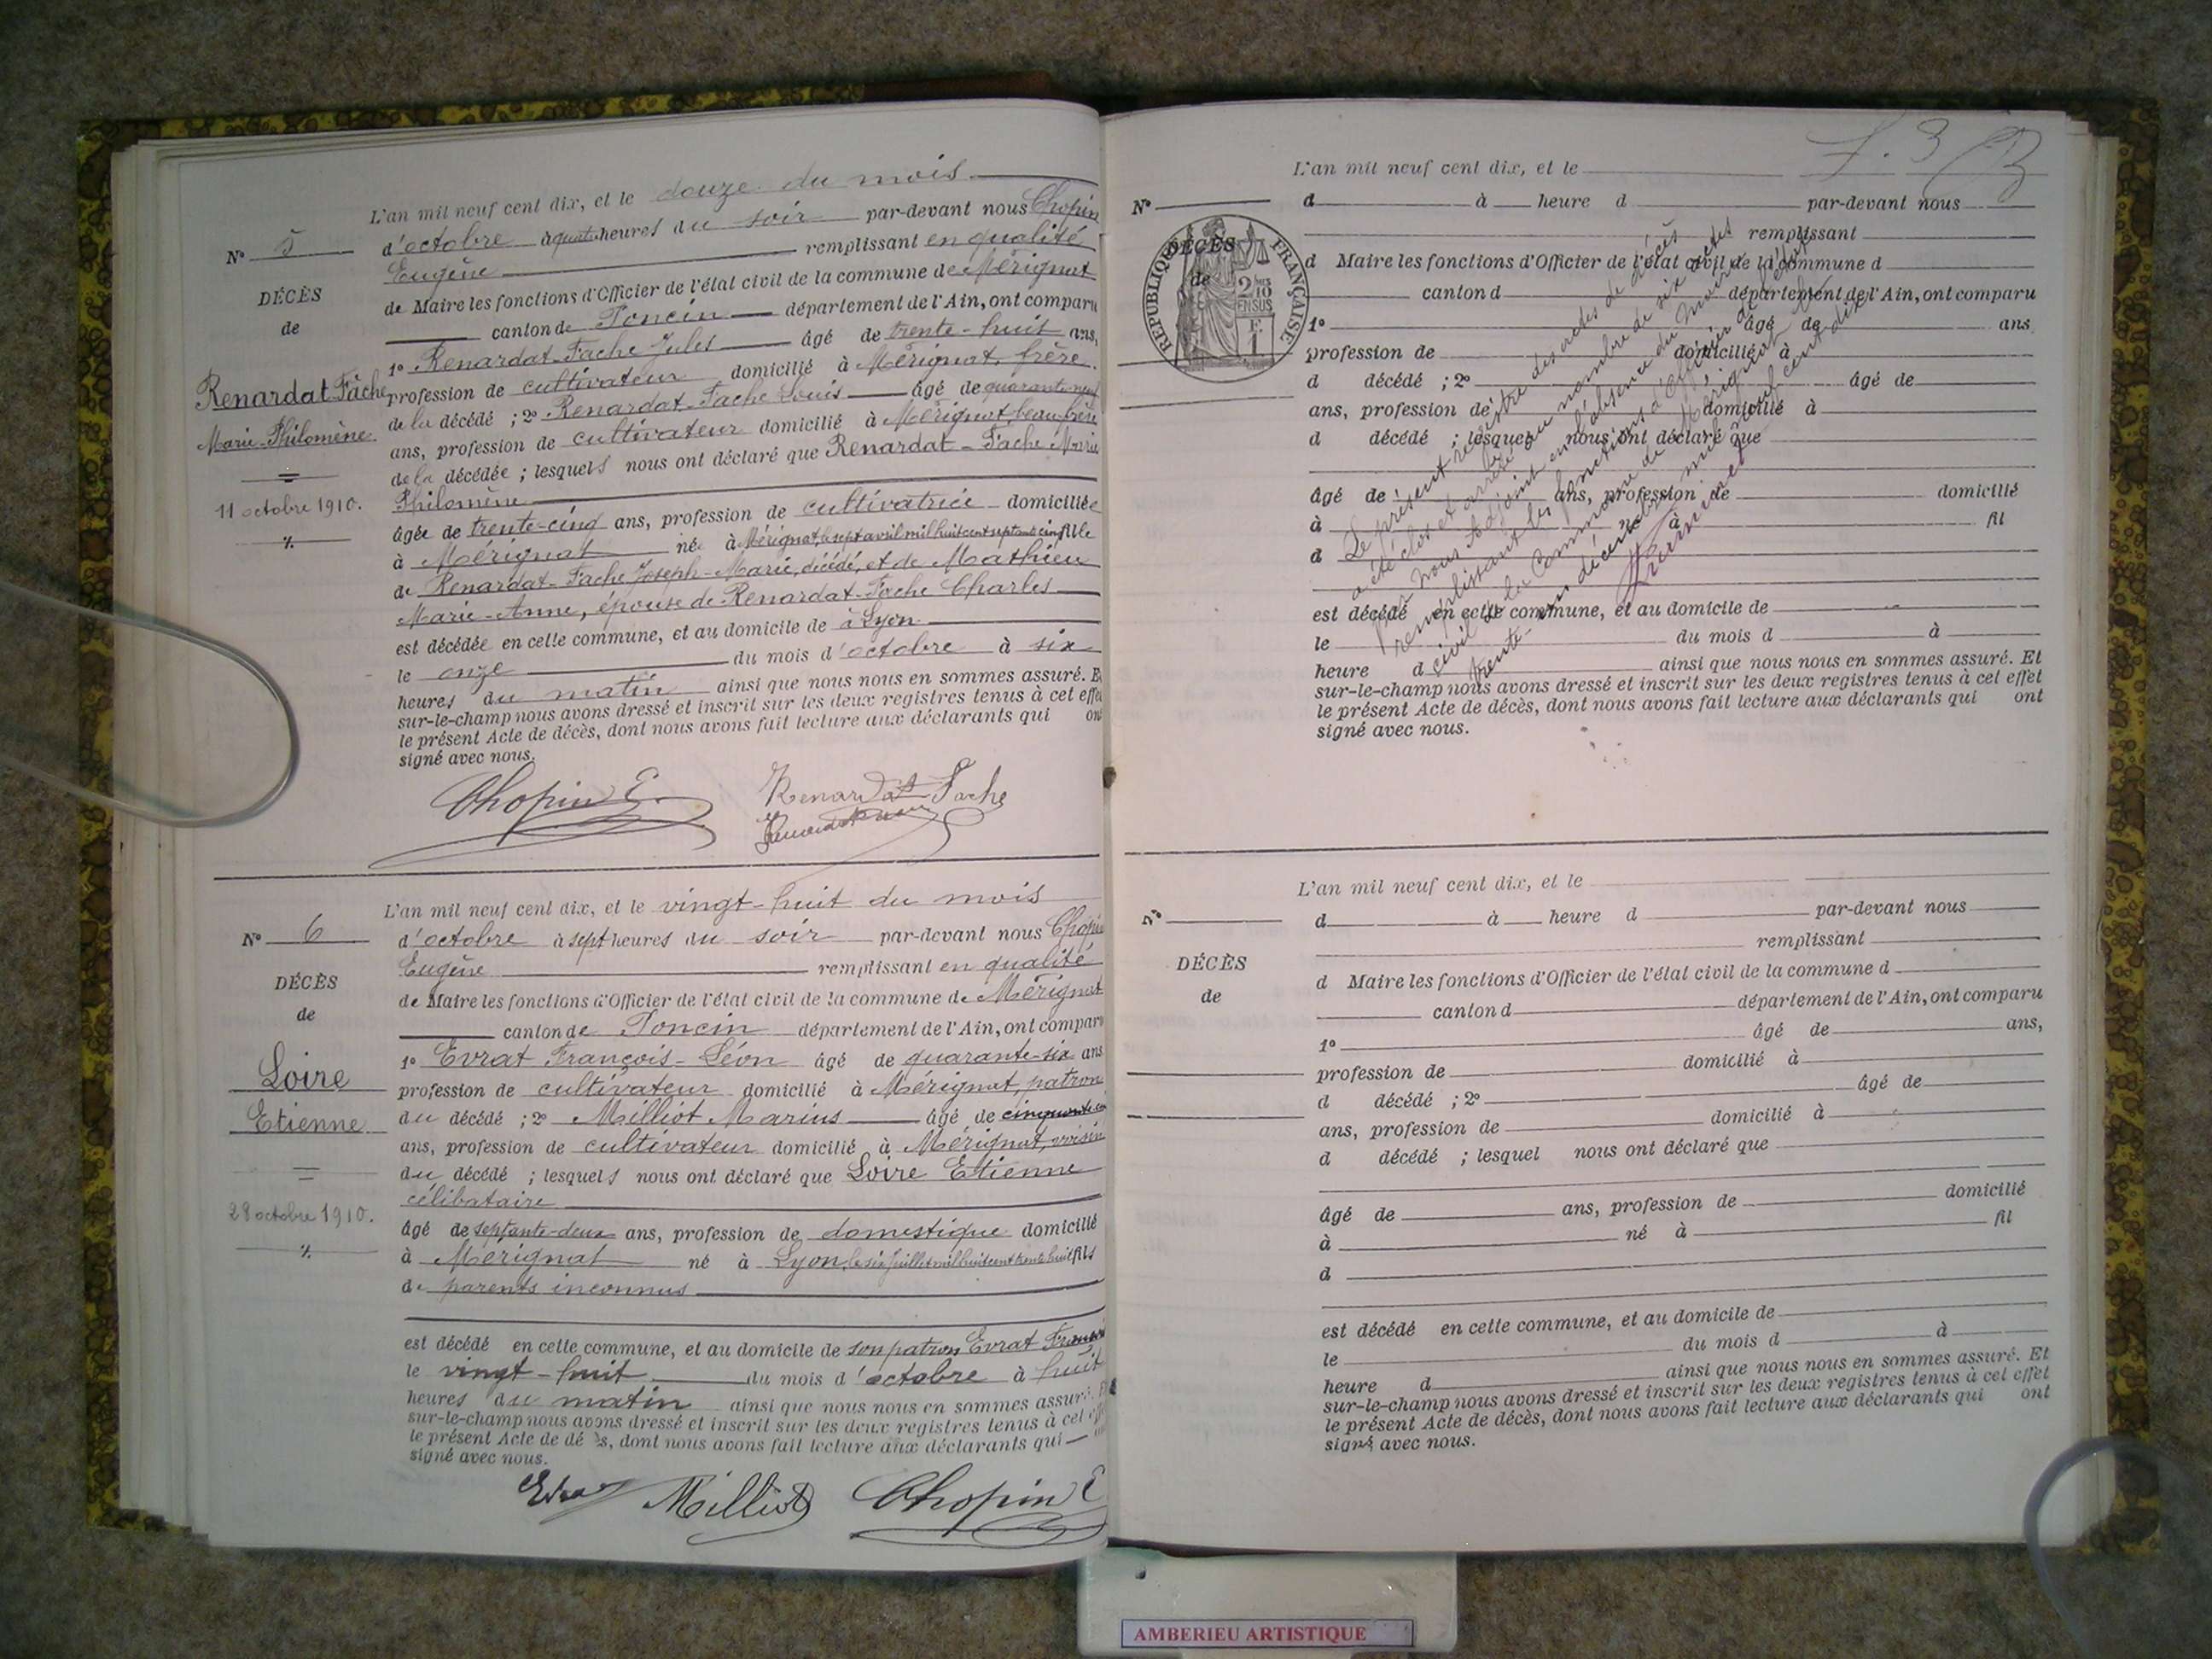 L'an mil neuf cent dix, et le douze du mois
N° 5
d'octobre à quatre heures du soir par-devant nous Chopin
Eugène remplissant en qualité
DÉCÈS
de Maire les fonctions d'Officier de l'état civil de la commune de Mérignat
de
canton de Poncin département de l'Ain, ont comparu
1° Renardat-Fache Jules âgé de trente-huit ans,
Renardat-Fache
profession de cultivateur domicilié à Mérignat, frère
de la décédé ; 2° Renardat-Fache Louis âgé de quarante-neuf
Marie-Philomène
ans, profession de cultivateur domicilié à Mérignat, beau-frère
de la décédée ; lesquels nous ont déclaré que Renardat-Fache Marie
11 octobre 1910.
Philomène
âgée de trente-cinq ans, profession de cultivatrice domiciliée
à Mérignat née à Mérignat, le sept avril mil huit cent septante cinq fille
de Renardat-Fache Joseph-Marie, décédé, et de Mathieu
Marie-Anne, épouse de Renardat-Fache Charles
est décédée en cette commune, et au domicile de à Lyon
le onze du mois d'octobre à six
heures du matin ainsi que nous nous en sommes assuré. E
sur-le-champ nous avons dressé et inscrit sur les deux registres tenus à cet effe
le présent Acte de décès, dont nous avons fait lecture aux déclarants qui on
signé avec nous.
Chopin E. Renardat Fache
L'an mil neuf cent dix, et le vingt-huit du mois
N° 6
d'octobre à sept heures du soir par-devant nous Chopin
Eugène remplissant en qualité
DÉCÈS
de Maire les fonctions d'Officier de l'état civil de la commune de Mérignat
de
canton de Poncin département de l'Ain, ont comparu
1° Evrat François-Léon âgé de quarante-six ans
Loire
profession de cultivateur domicilié à Mérignat, patron
Etienne
du décédé ; 2° Milliot Marius âgé de
ans, profession de cultivateur domicilié à Mérignat, voisin
du décédé ; lesquels nous ont déclaré que Loire Etienne
célibataire
28 octobre 1910.
âgé de septante-deux ans, profession de domestique domicilié
à Mérignat né à Lyon, le six juillet mil huit cent trente huit fils
de parents inconnus
est décédé en cette commune, et au domicile de son patron Evrat François
le vingt-huit du mois d'octobre à huit
heures du matin ainsi que nous nous en sommes assuré.
sur-le-champ nous avons dressé et inscrit sur les deux registres tenus à cet
le présent Acte de dé s, dont nous avons fait lecture aux déclarants qui
signé avec nous.
Milliot Chopin E
F. 3
L'an mil neuf cent dix, et le
N°
d à heure d par-devant nous
remplissant
DÉCÈS
de
RÉPUBLIQUE FRANÇAISE
2/10 EN SUS
d Maire les fonctions d'Officier de l'état civil de la commune d
canton d département de l'Ain, ont comparu
1° âgé de ans
profession de domicilié à
d décédé ; 2° âgé de
ans, profession de domicilié à
d décédé ; lesquel nous ont déclaré que
âgé de ans, profession de domicilié
à né à fil
d
est décédé en cette commune, et au domicile de
le du mois d à
heure d ainsi que nous nous en sommes assuré. Et
sur-le-champ nous avons dressé et inscrit sur les deux registres tenus à cet effet
le présent Acte de décès, dont nous avons fait lecture aux déclarants qui ont
signé avec nous.
Le présent registre des actes de décès
a été clos et arrêté au nombre de six actes
par nous Adjoint en l'absence du Maire
remplissant les fonctions d'Officier de l'état
civil de la Commune de Mérignat le
trente-un décembre mil neuf cent dix
L'an mil neuf cent dix, et le
N°
d à heure d par-devant nous
remplissant
DÉCÈS
d Maire les fonctions d'Officier de l'état civil de la commune d
de
canton d département de l'Ain, ont comparu
1° âgé de ans,
profession de domicilié à
d décédé ; 2° âgé de
ans, profession de domicilié à
d décédé ; lesquel nous ont déclaré que
âgé de ans, profession de domicilié
à né à fil
d
est décédé en cette commune, et au domicile de
le du mois d à
heure d ainsi que nous nous en sommes assuré. Et
sur-le-champ nous avons dressé et inscrit sur les deux registres tenus à cet effet
le présent Acte de décès, dont nous avons fait lecture aux déclarants qui ont
signé avec nous.
AMBERIEU ARTISTIQUE